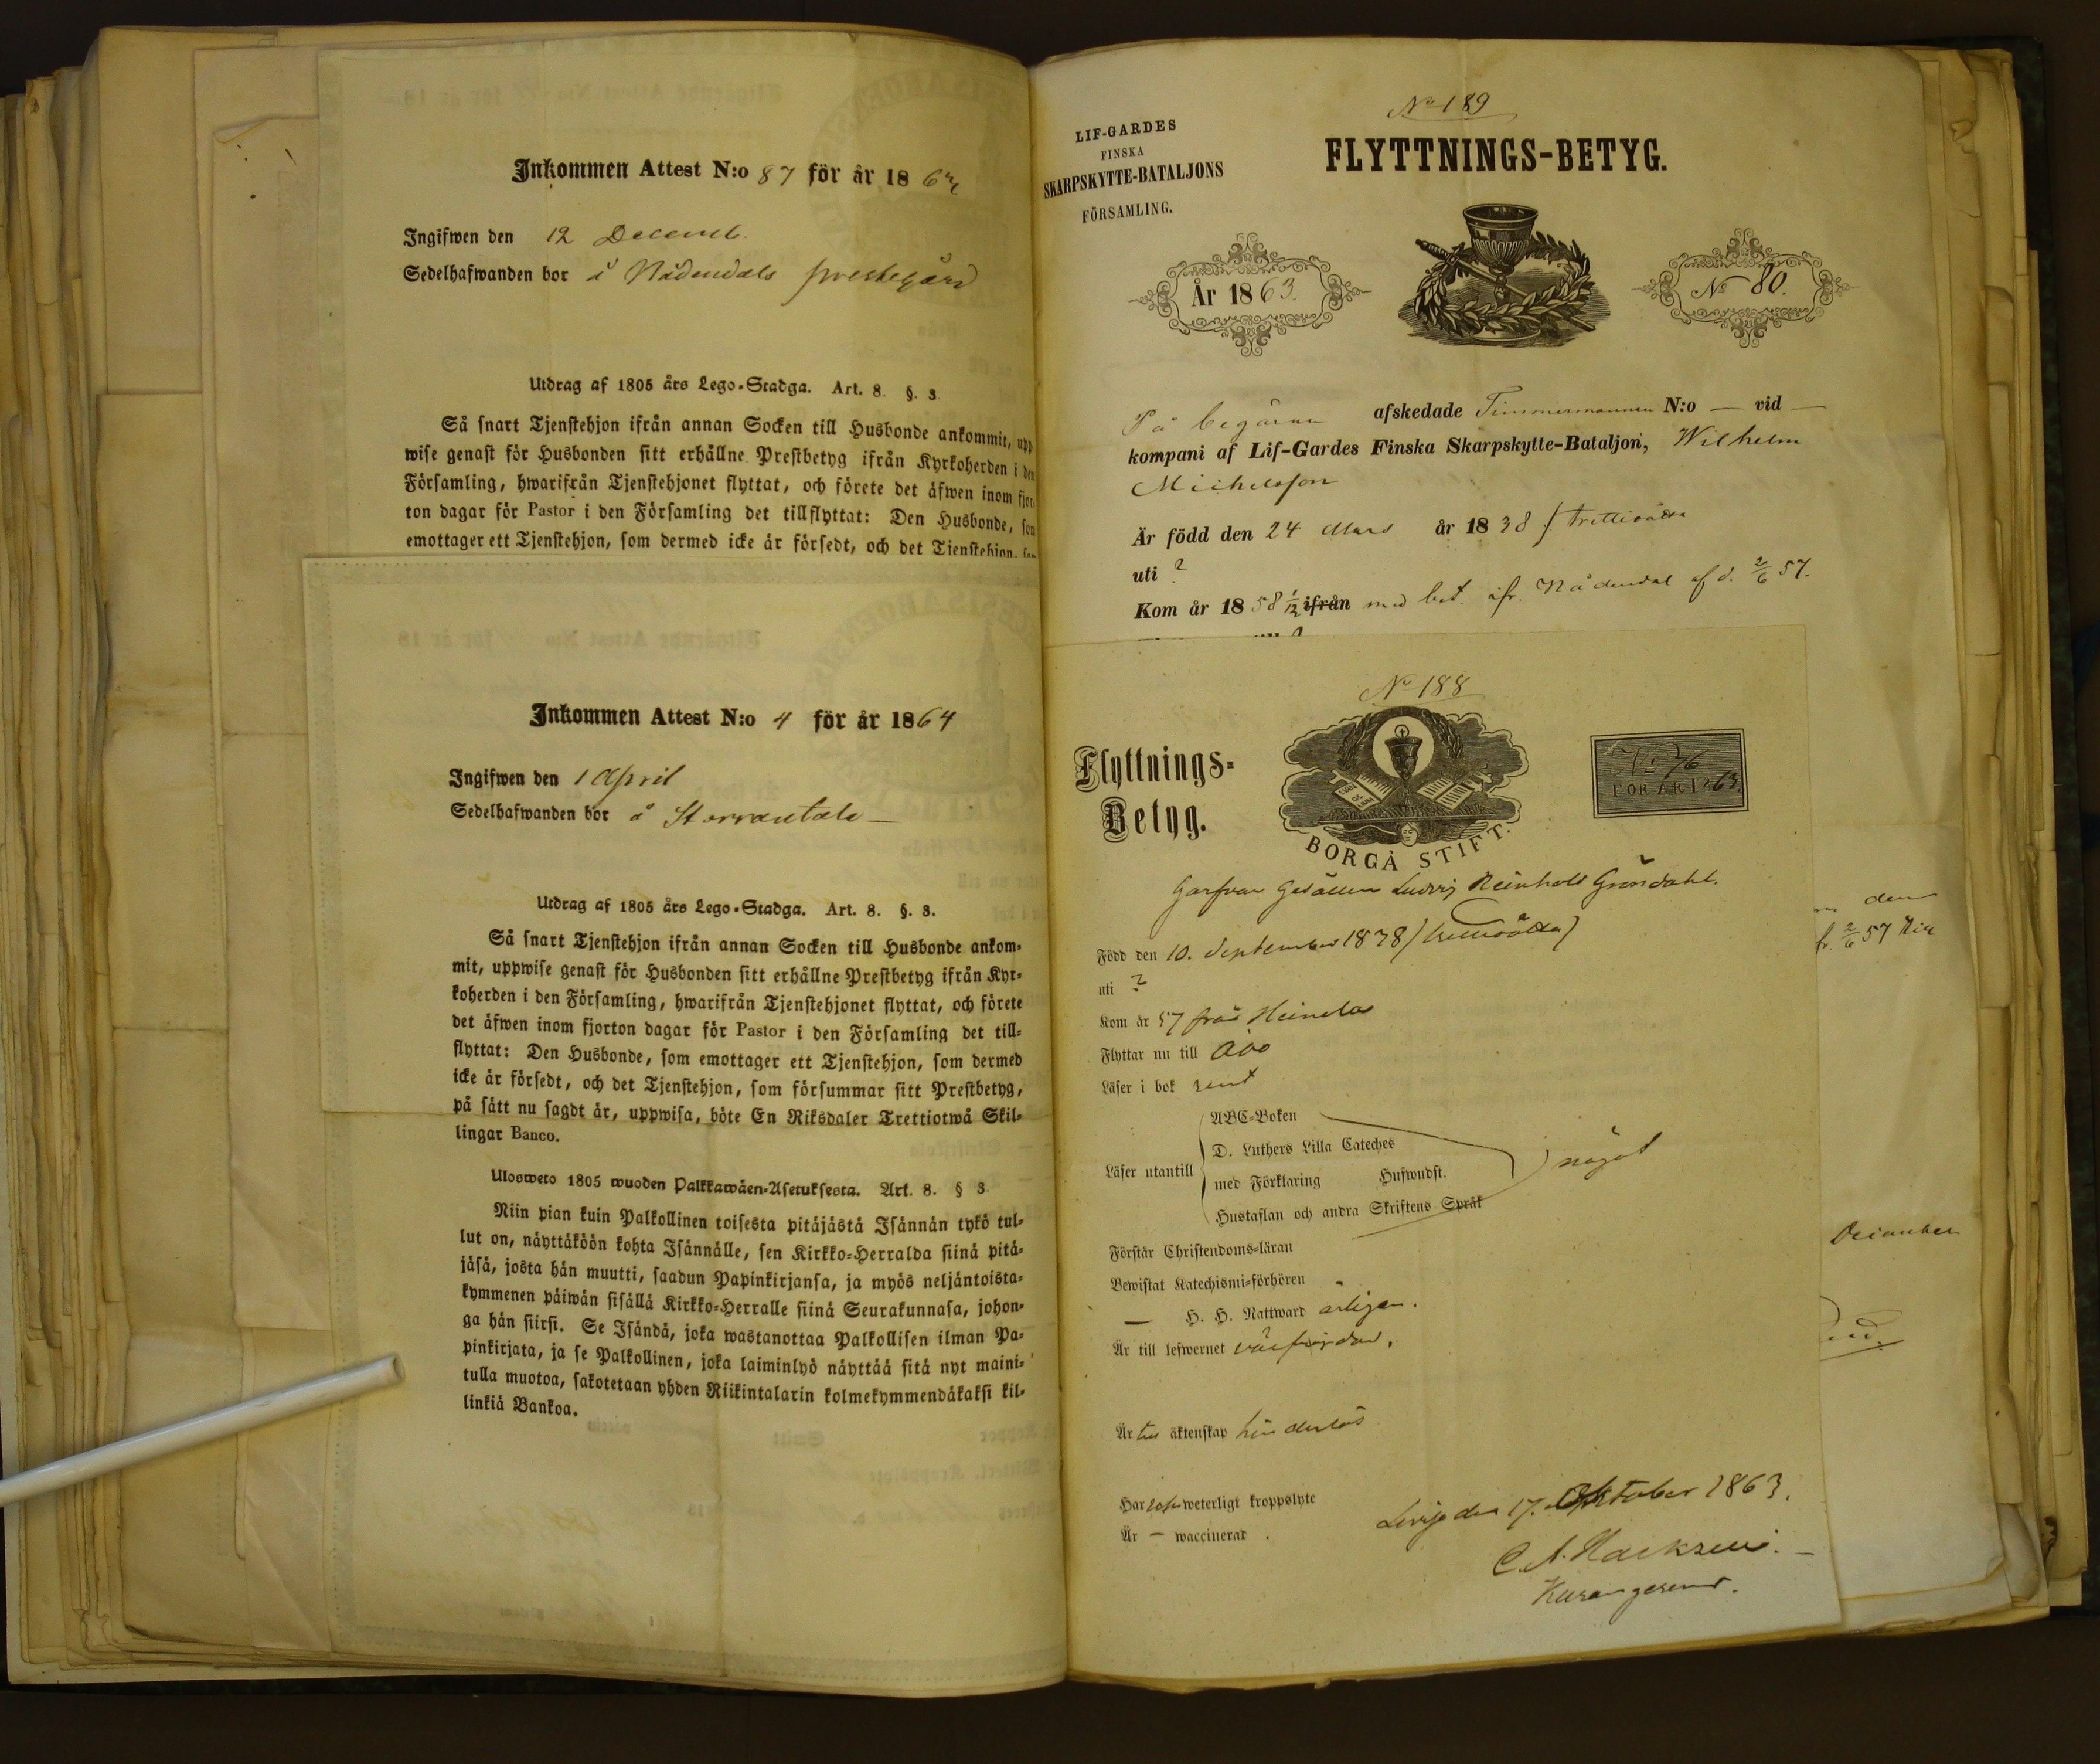 Inkommen Attest N:o 87 för år 186
Ingifwen den 12 Decemb.
Sedelhafwanden bor å Nådendals prestegård
Utdrag af 1805 års Lego-Stadga. Art. 8. §. 3
Så snart Tjenstehjon ifrån annan Socken till Husbonde ankommit, upp
wise genast för Husbonden sitt erhållne Prestbetyg ifrån Kyrkoherden i den
Församling, hwarifrån Tjenstehjonet flyttat, och förete det äfwen inom fjor-
ton dagar för Pastor i den Församling det tillflyttat: Den Husbonde, som
emottager ett Tjenstehjon, som dermed icke är försedt, och det Tjenstehjon, som
Inkommen Attest N:o 4 för år 1864
Ingifwen den 1 April
Sedelhafwanden bor å
Utdrag af 1805 års Lego-Stadga. Art. 8. §. 3.
Så snart Tjenstehjon ifrån annan Socken till Husbonde ankom-
mit, uppwise genast för Husbonden sitt erhållne Prestbetyg ifrån Kyr-
koherden i den Församling, hwarifrån Tjenstehjonet flyttat, och förete
det äfwen inom fjorton dagar för Pastor i den Församling det till-
flyttat: Den Husbonde, som emottager ett Tjenstehjon, som dermed
icke är försedt, och det Tjenstehjon, som försummar sitt Prestbetyg,
på sätt nu sagdt är, uppwisa, böte En Riksdaler Trettiotwå Skil-
lingar Banco.
Ulosweto 1805 wuoden Palkkawäen-Asetuksesta. Art. 8. § 3.
Niin pian kuin Palkollinen toisesta pitäjästä Isännän tykö tul-
lut on, näyttäköön kohta Isännälle, sen Kirkko-Herralda siinä pitä-
jäsä, josta hän muutti, saadun Papinkirjansa, ja myös neljäntoista-
kymmenen päiwän sisällä Kirkko-Herralle siinä Seurakunnasa, johon-
ga hän siirsi. Se Isändä, joka wastanottaa Palkollisen ilman Pa-
pinkirjata, ja se Palkollinen, joka laiminlyö näyttää sitä nyt maini-
tulla muotoa, sakotetaan yhden Riikintalarin kolmekymmendäkaksi kil-
linkiä Bankoa.
No 189
LIF-GARDES
FINSKA
SKARPSKYTTE-BATALJONS
FÖRSAMLING.
FLYTTNINGS-BETYG.
År 1863.
No 80.
På begäran afskedade Timmermannen N:o — vid —
kompani af Lif-Gardes Finska Skarpskytte-Bataljon, Wilhelm
Michelsson
Är född den 24 Mars år 1838 / trettioåtta
uti ?
Kom år 1858 1/12 ifrån med bet. ifr. Nådendal af d. 2/6 57.
No 188
Flyttnings-
Betyg.
BORGÅ STIFT.
No 76
FÖR ÅR 1863.
Garfvar Gesällen Ludvig Reinhold Gröndahl.
Född den 10. September 1838 (trettioåtta)
uti ?
Kom år 57 från Heinola
Flyttar nu till Åbo
Läser i bok rent
Läser utantill
ABC-Boken
D. Luthers Lilla Cateches
med Förklaring Hufwudst.
Hustaflan och andra Skriftens Språk
något
Förstår Christendoms-läran
Bewistat Katechismi-förhören
— H. H. Nattward årligen.
Är till lefwernet
Är till äktenskap hinderlös
Har icke weterligt kroppslyte
Är — waccinerad.
den 17. Oktober 1863.
den
fr. 2/6 57
December